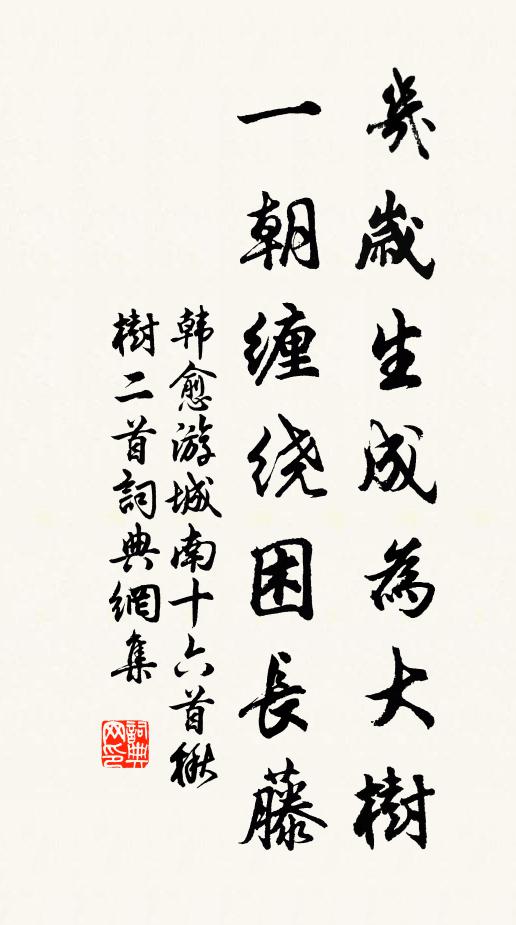 幾歲生成為大樹
一朝缠绕困長藤
韩愈游城南十六首楸
樹二首詞典網集
詞典網印